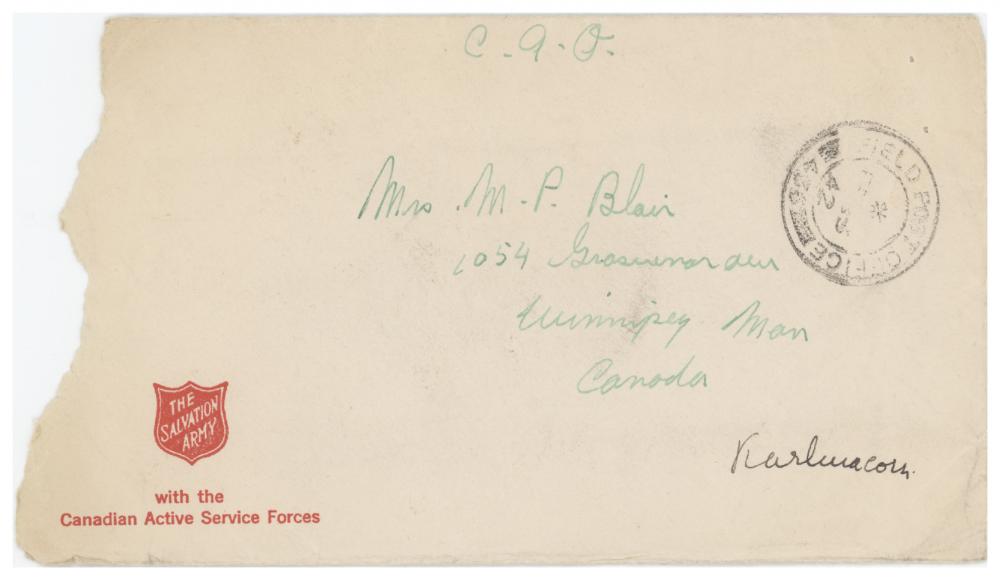 C.A.O.
FIELD POST OFFICE
Mrs. M. P. Blair
1054 Grosvenor
Winnipeg Man
Canada
THE
SALVATION
ARMY
with the
Canadian Active Service Forces